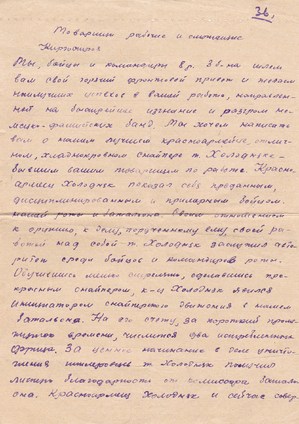 36.
Товарищи рабочие и служащие
Мы, бойцы и командиры в р. 36-на шлем
вам свой горячий фронтовой привет и желаем
наилучших успехов в вашей работе, направлен-
ной на быстрейшее изгнание и разгром не-
мецко-фашистских банд. Мы хотим написать
вам о нашем лучшем красноармейце,
хладнокровном снайпере т. Холодняк -
бывшим вашим товарищем по работе. Красно-
армеец Холодняк показал себя преданным,
дисциплинированным и примерным бойцом
нашей роты и батальона. Своим отношением
к оружию, к делу, порученному ему, своей ра-
ботой над собой т. Холодняк заслужил авто-
ритет среди бойцов и командиров роты.
Обучившись метко стрелять, сделавшись пре-
красным снайпером, к-ц Холодняк явился
инициатором снайперского движения в нашем
батальоне. На его счету, за короткий проме-
жуток времени, числится два истребленных
фрица. За ценное начинание в деле уничто-
жения гитлеровцев т. Холодняк получил
благодарность от комиссара баталь-
она. Красноармеец Холодняк и сейчас